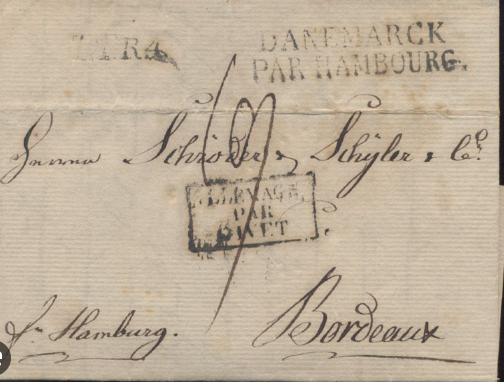 L.T.R.4.
DANEMARCK
PAR HAMBOURG.
Herren Schröder & Schÿler & Co.
ALLEMAGE.
PAR
GIVET
Hamburg.
Bordeaux